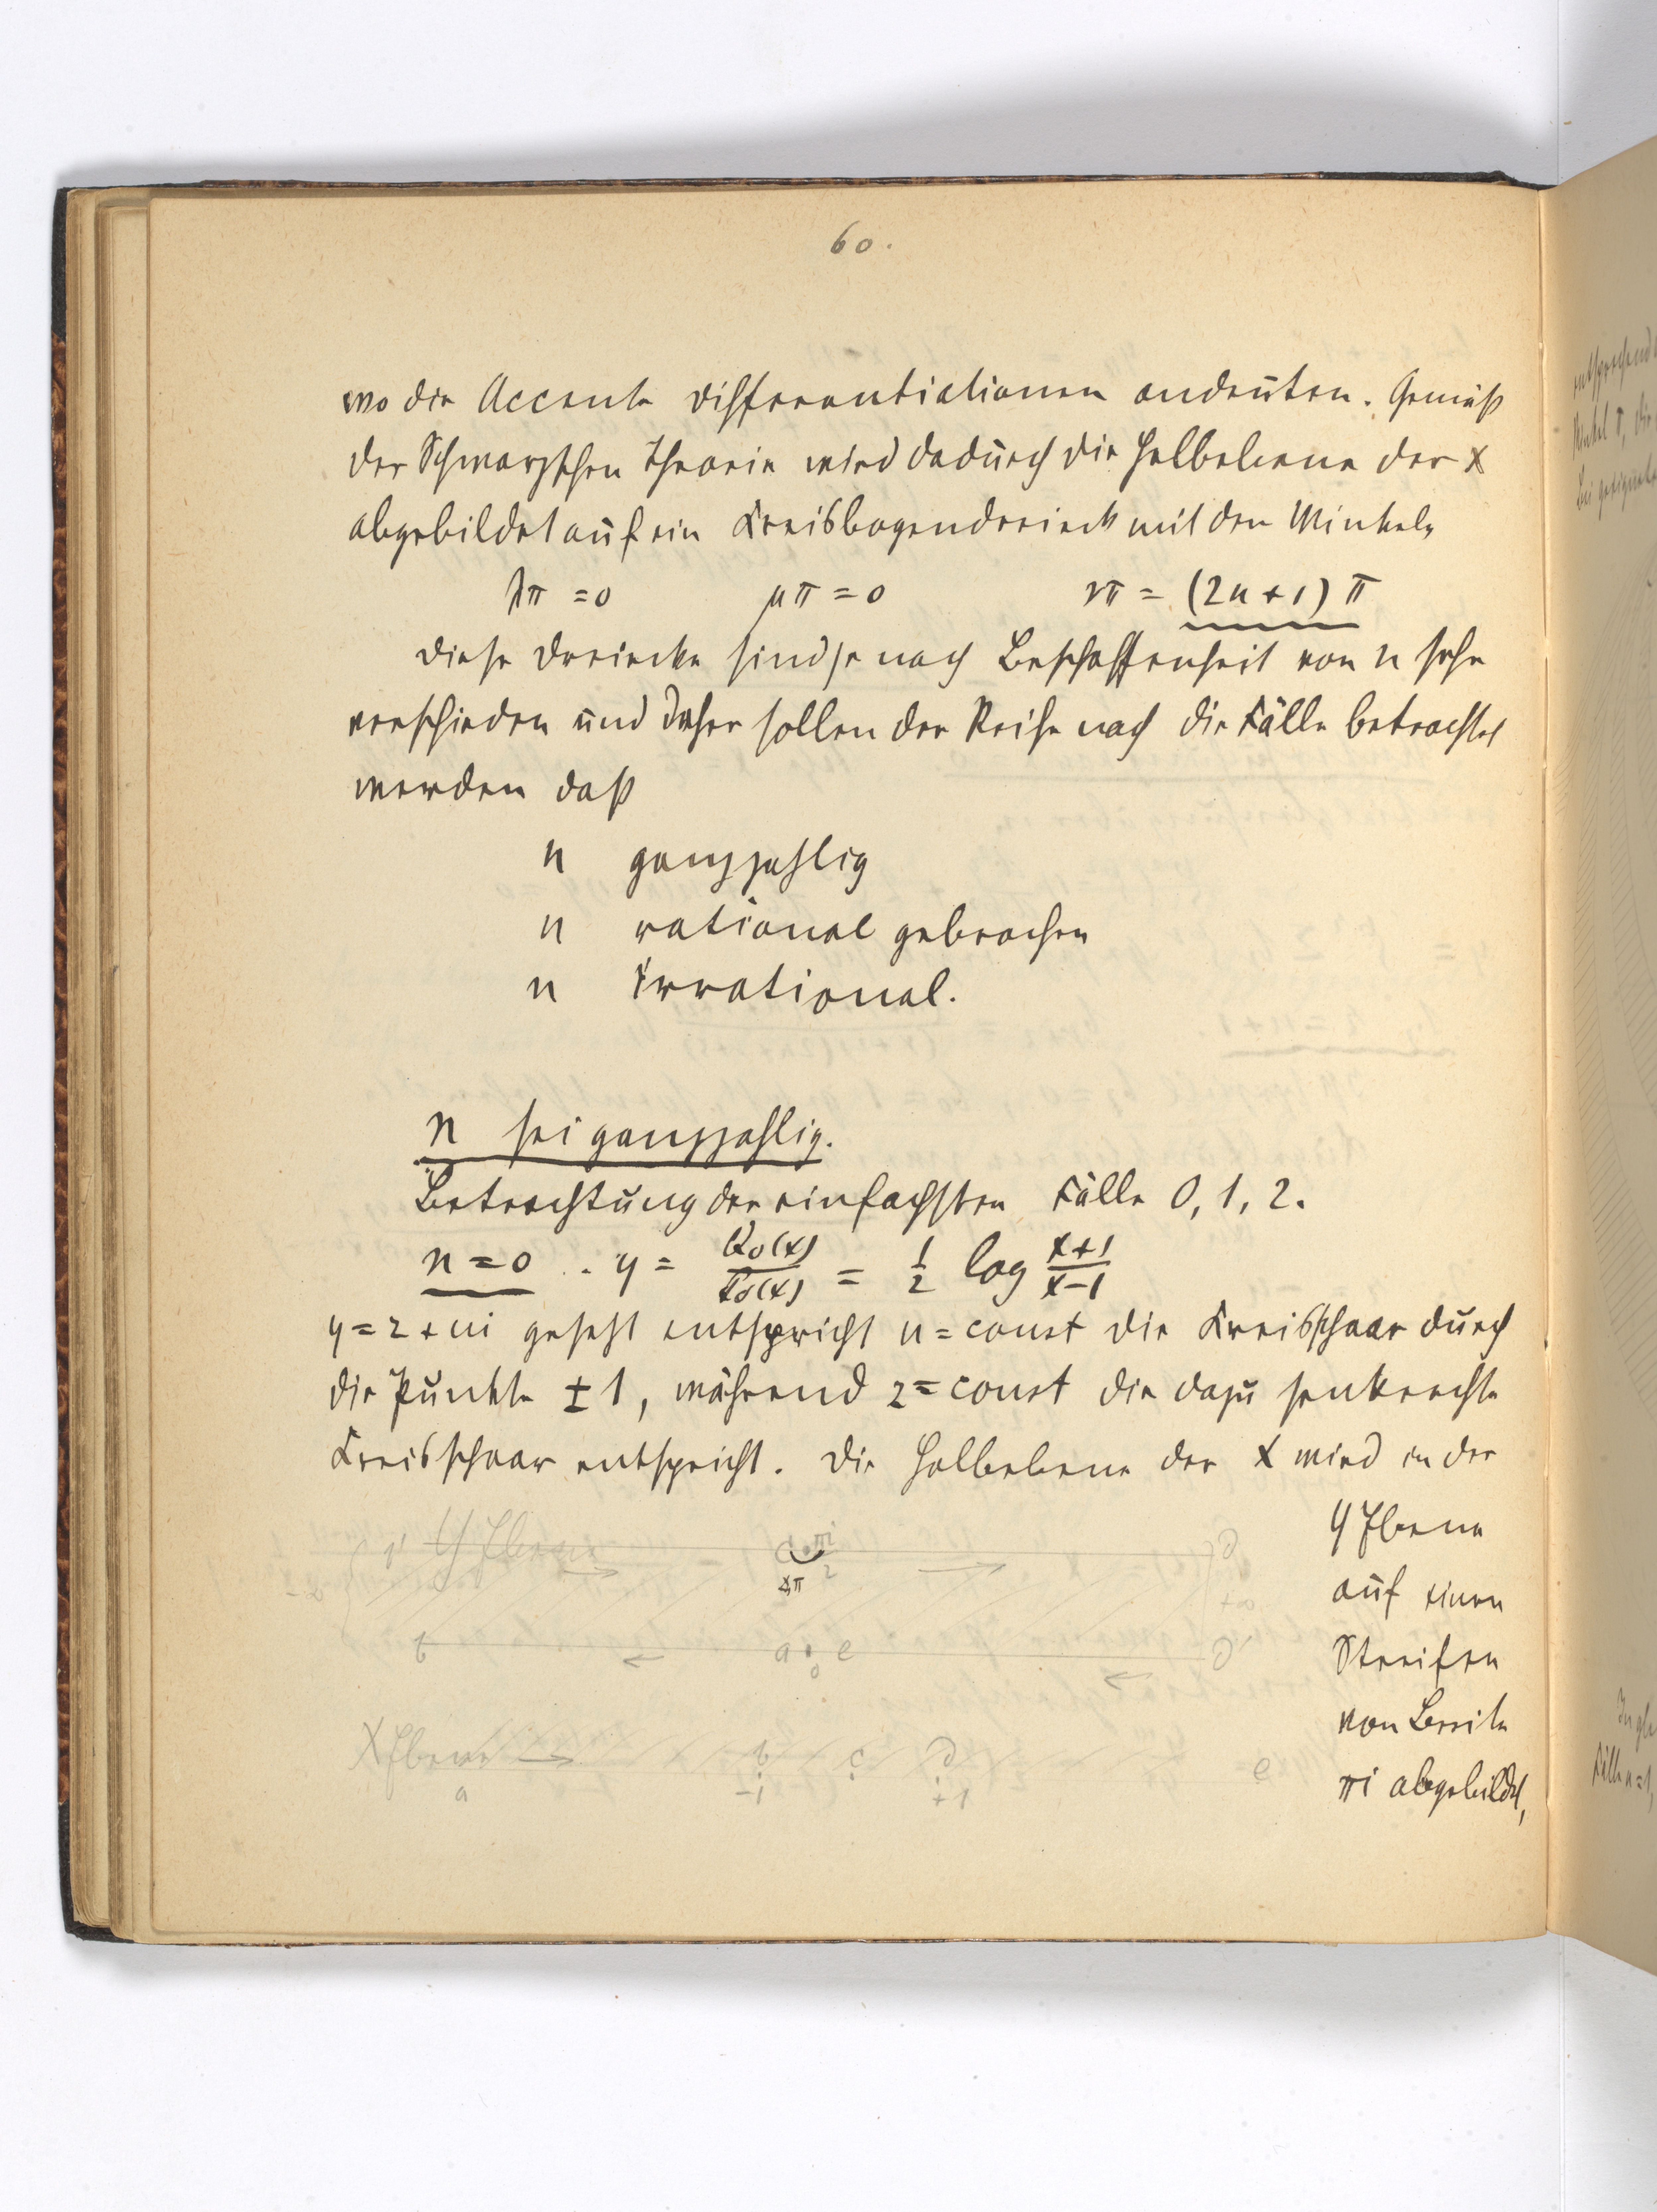 60.
wo die Accente Differentiationen andeuten. Gemäß
der Schwarzschen Theorie wird dadurch die Halbebene der x
abgebildet auf ein Kreisbogendreieck mit den Winkeln
λπ = 0 μπ = 0 νπ = (2n+1) π
Diese Dreiecke sind je nach Beschaffenheit von n sehr
verschieden und daher sollen der Reihe nach die Fälle betrachtet
werden daß
n ganzzahlig
n rational gebrochen
n irrational.
n sei ganzzahlig.
Betrachtung der einfachsten Fälle 0, 1, 2.
n = 0 . y = Q₀(x)/P₀(x) = 1/2 log x+1/x-1
y = z + ui gesetzt entspricht u = const die Kreisschaar durch
die Punkte ± 1, während z = const die dazu senkrechte
Kreisschaar entspricht. Die Halbebene der x wird in der
y Ebene
auf einen
Streifen
von Breite
πi abgebildet,
y Ebene c πi/2 d
-∞ π +∞
b a 0 e d'
x Ebene b c d e
a -1 +1